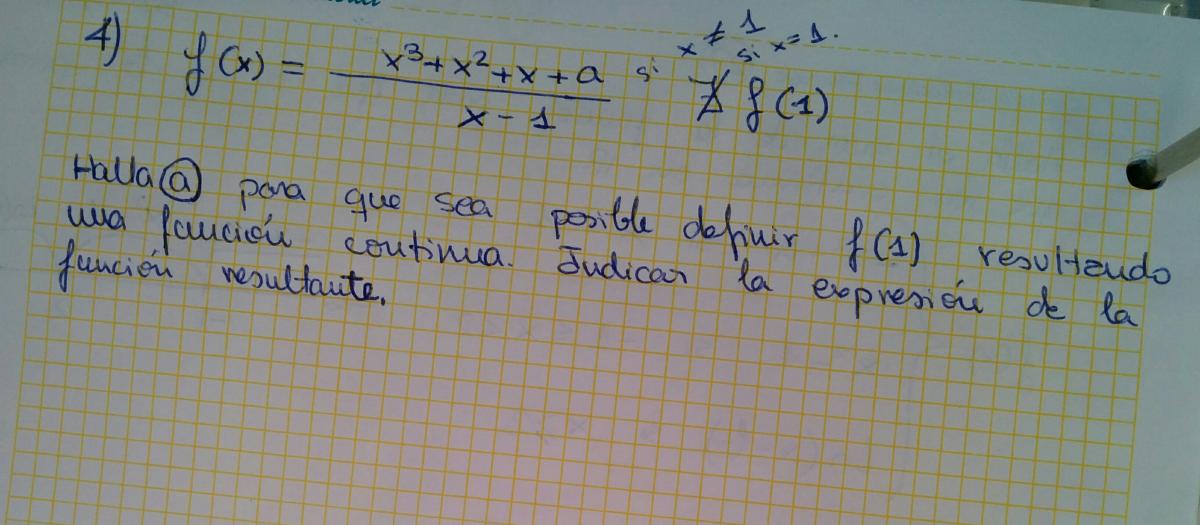 4) f(x) = x³+x²+x+a / x-1 si x ≠ 1
si x=1.
∄ f(1)
Halla (a) para que sea posible definir f(1) resultando
una función continua. Indicar la expresión de la
función resultante.